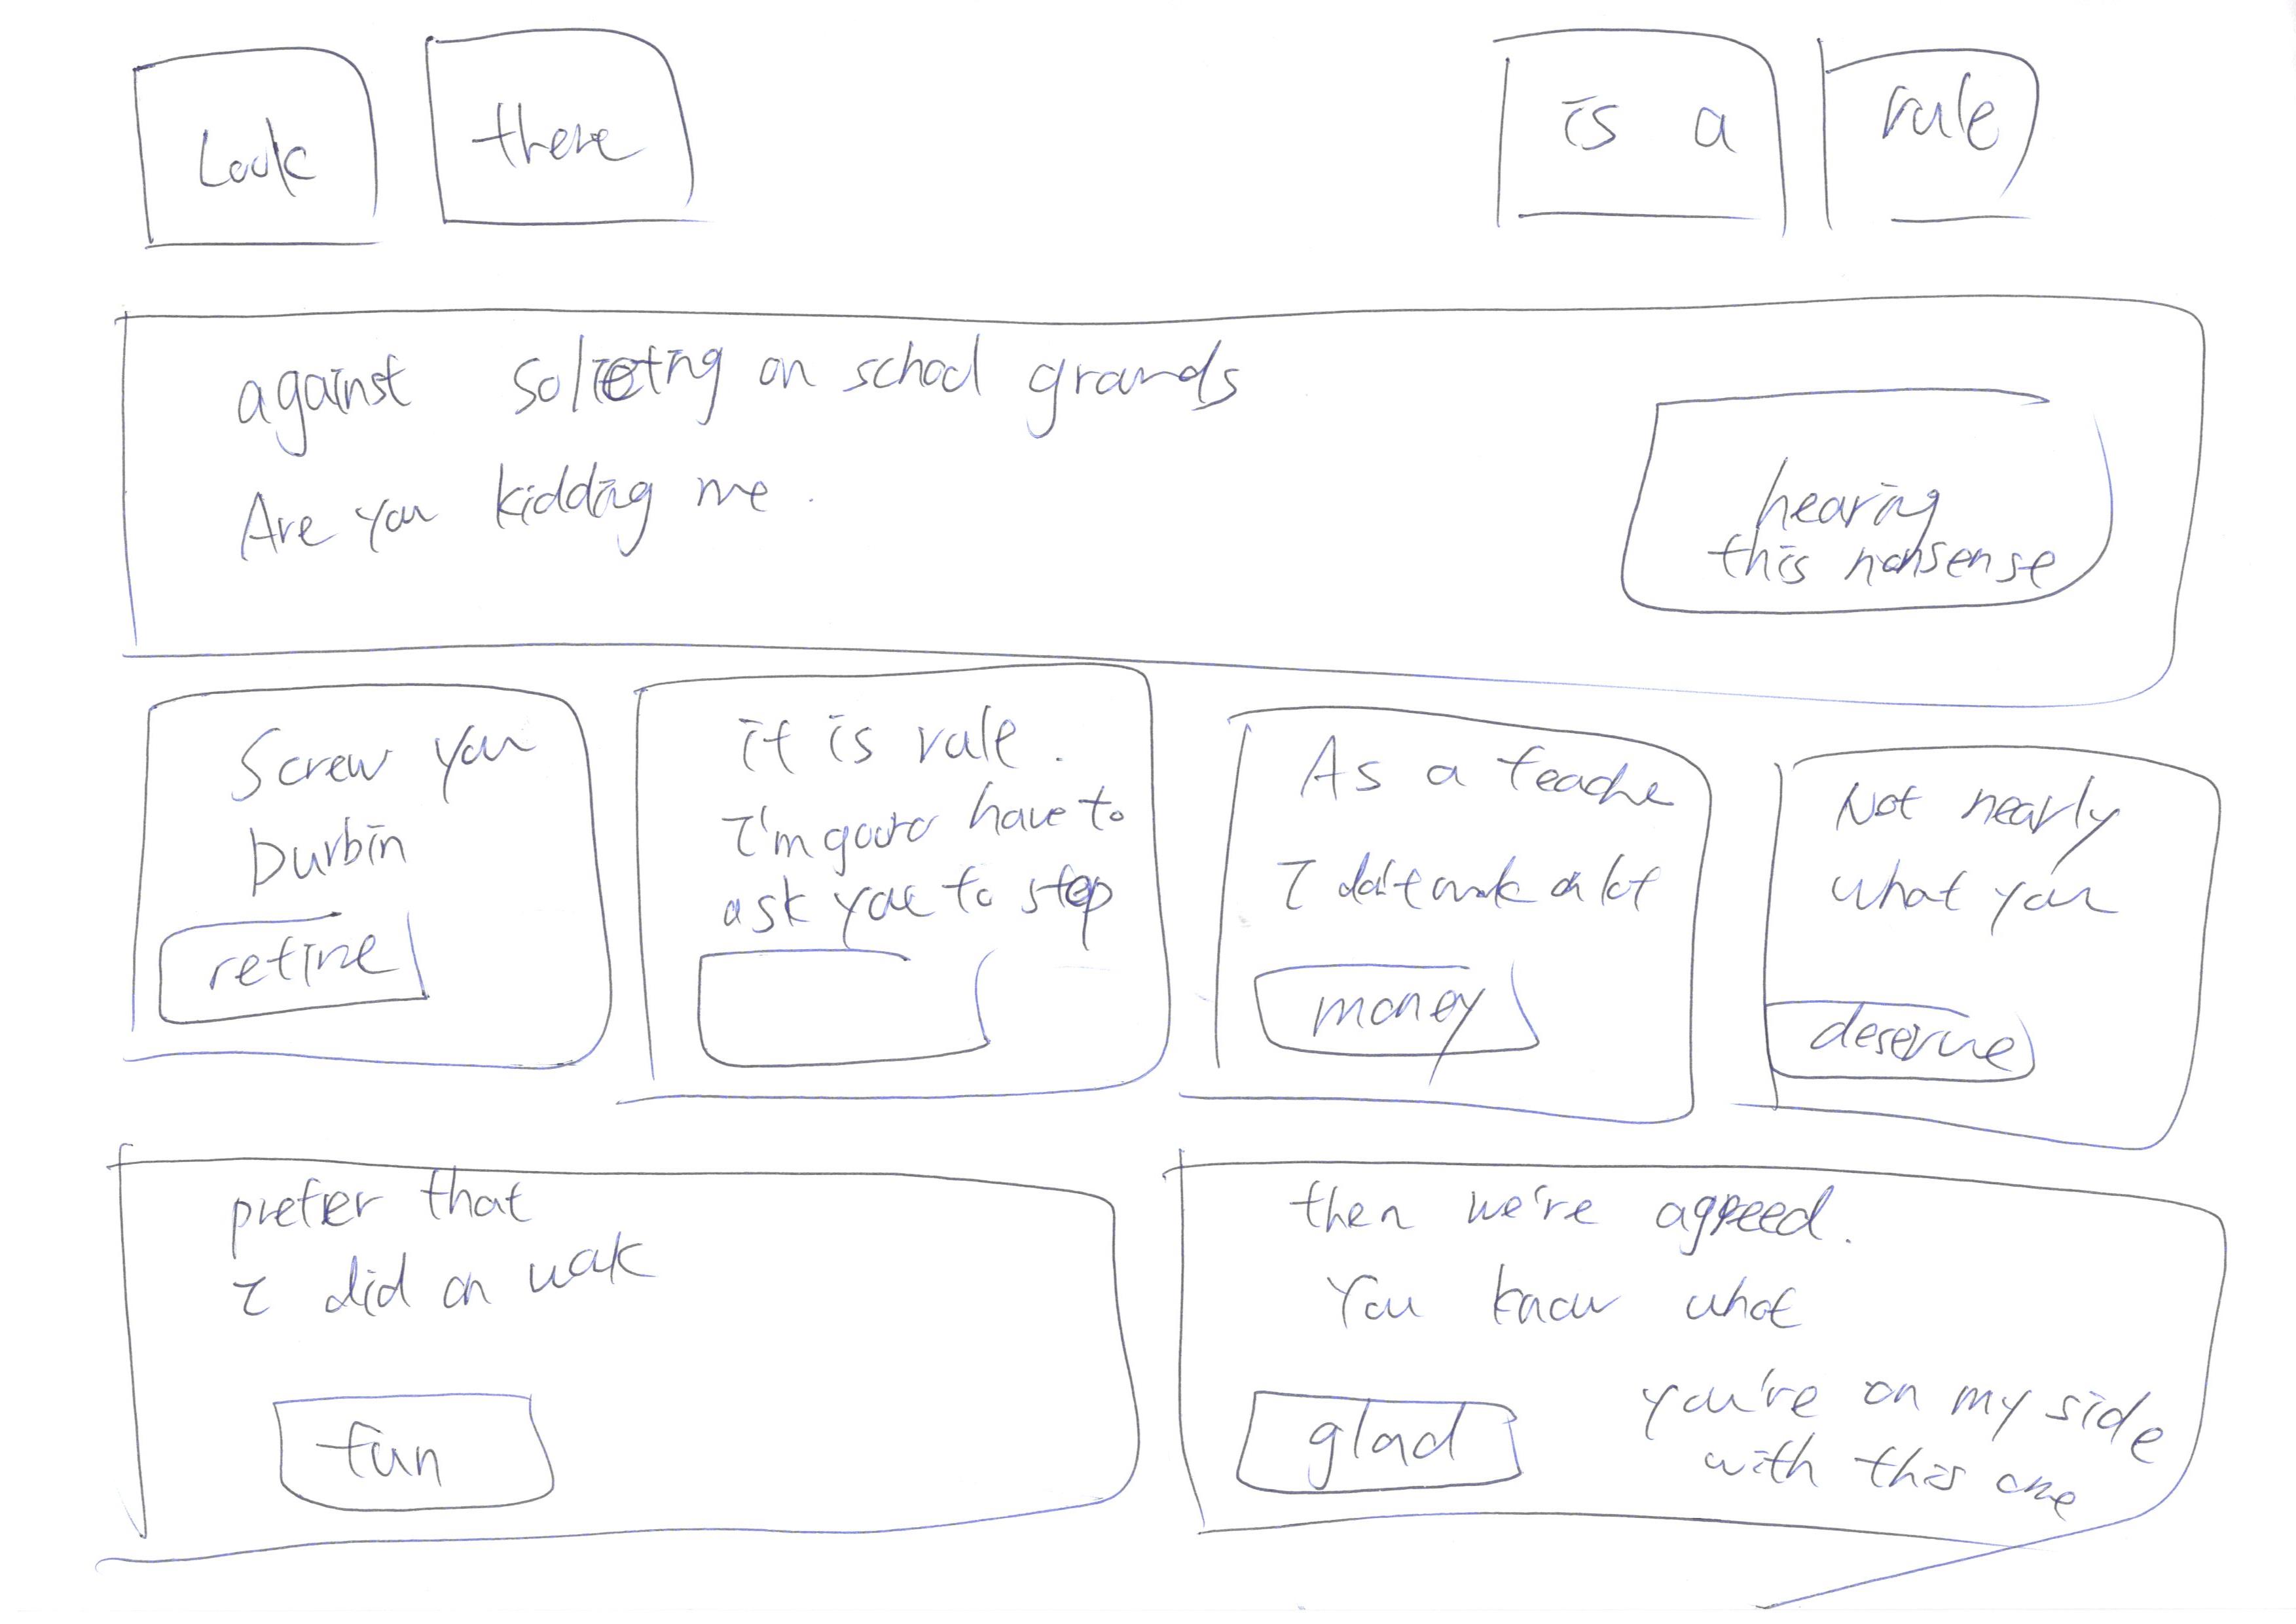 Look
there
is a
rule
against solieting on school grounds
Are you kidding me.
hearing
this nonsense
Screw you
Durbin
retire
it is rule.
I'm have to
ask you to stop
As a teache
I don't a lot
money
Not nearly
what you
deserve
prefer that
I did on
fun
then we're agreed.
You know what
glad
you're on my side
with this one